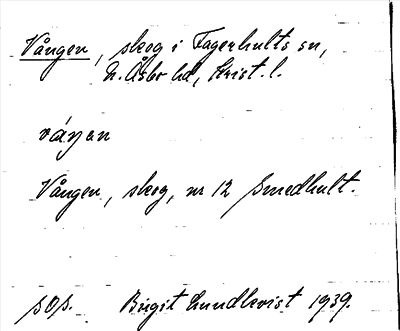 Vången, skog i Fagerhults sn,
N. Åsbo hd, Krist. l.
váŋən
Vången, skog, nr 12 Smedhult.
sOp. Birgit Lundkvist 1939.